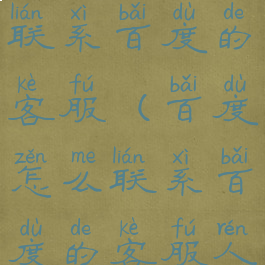 lián xì bǎi dù de
联系百度的
kè fú bǎi dù
客服(百度
zěn me lián xì bǎi
怎么联系百
dù de kè fú rén
度的客服人